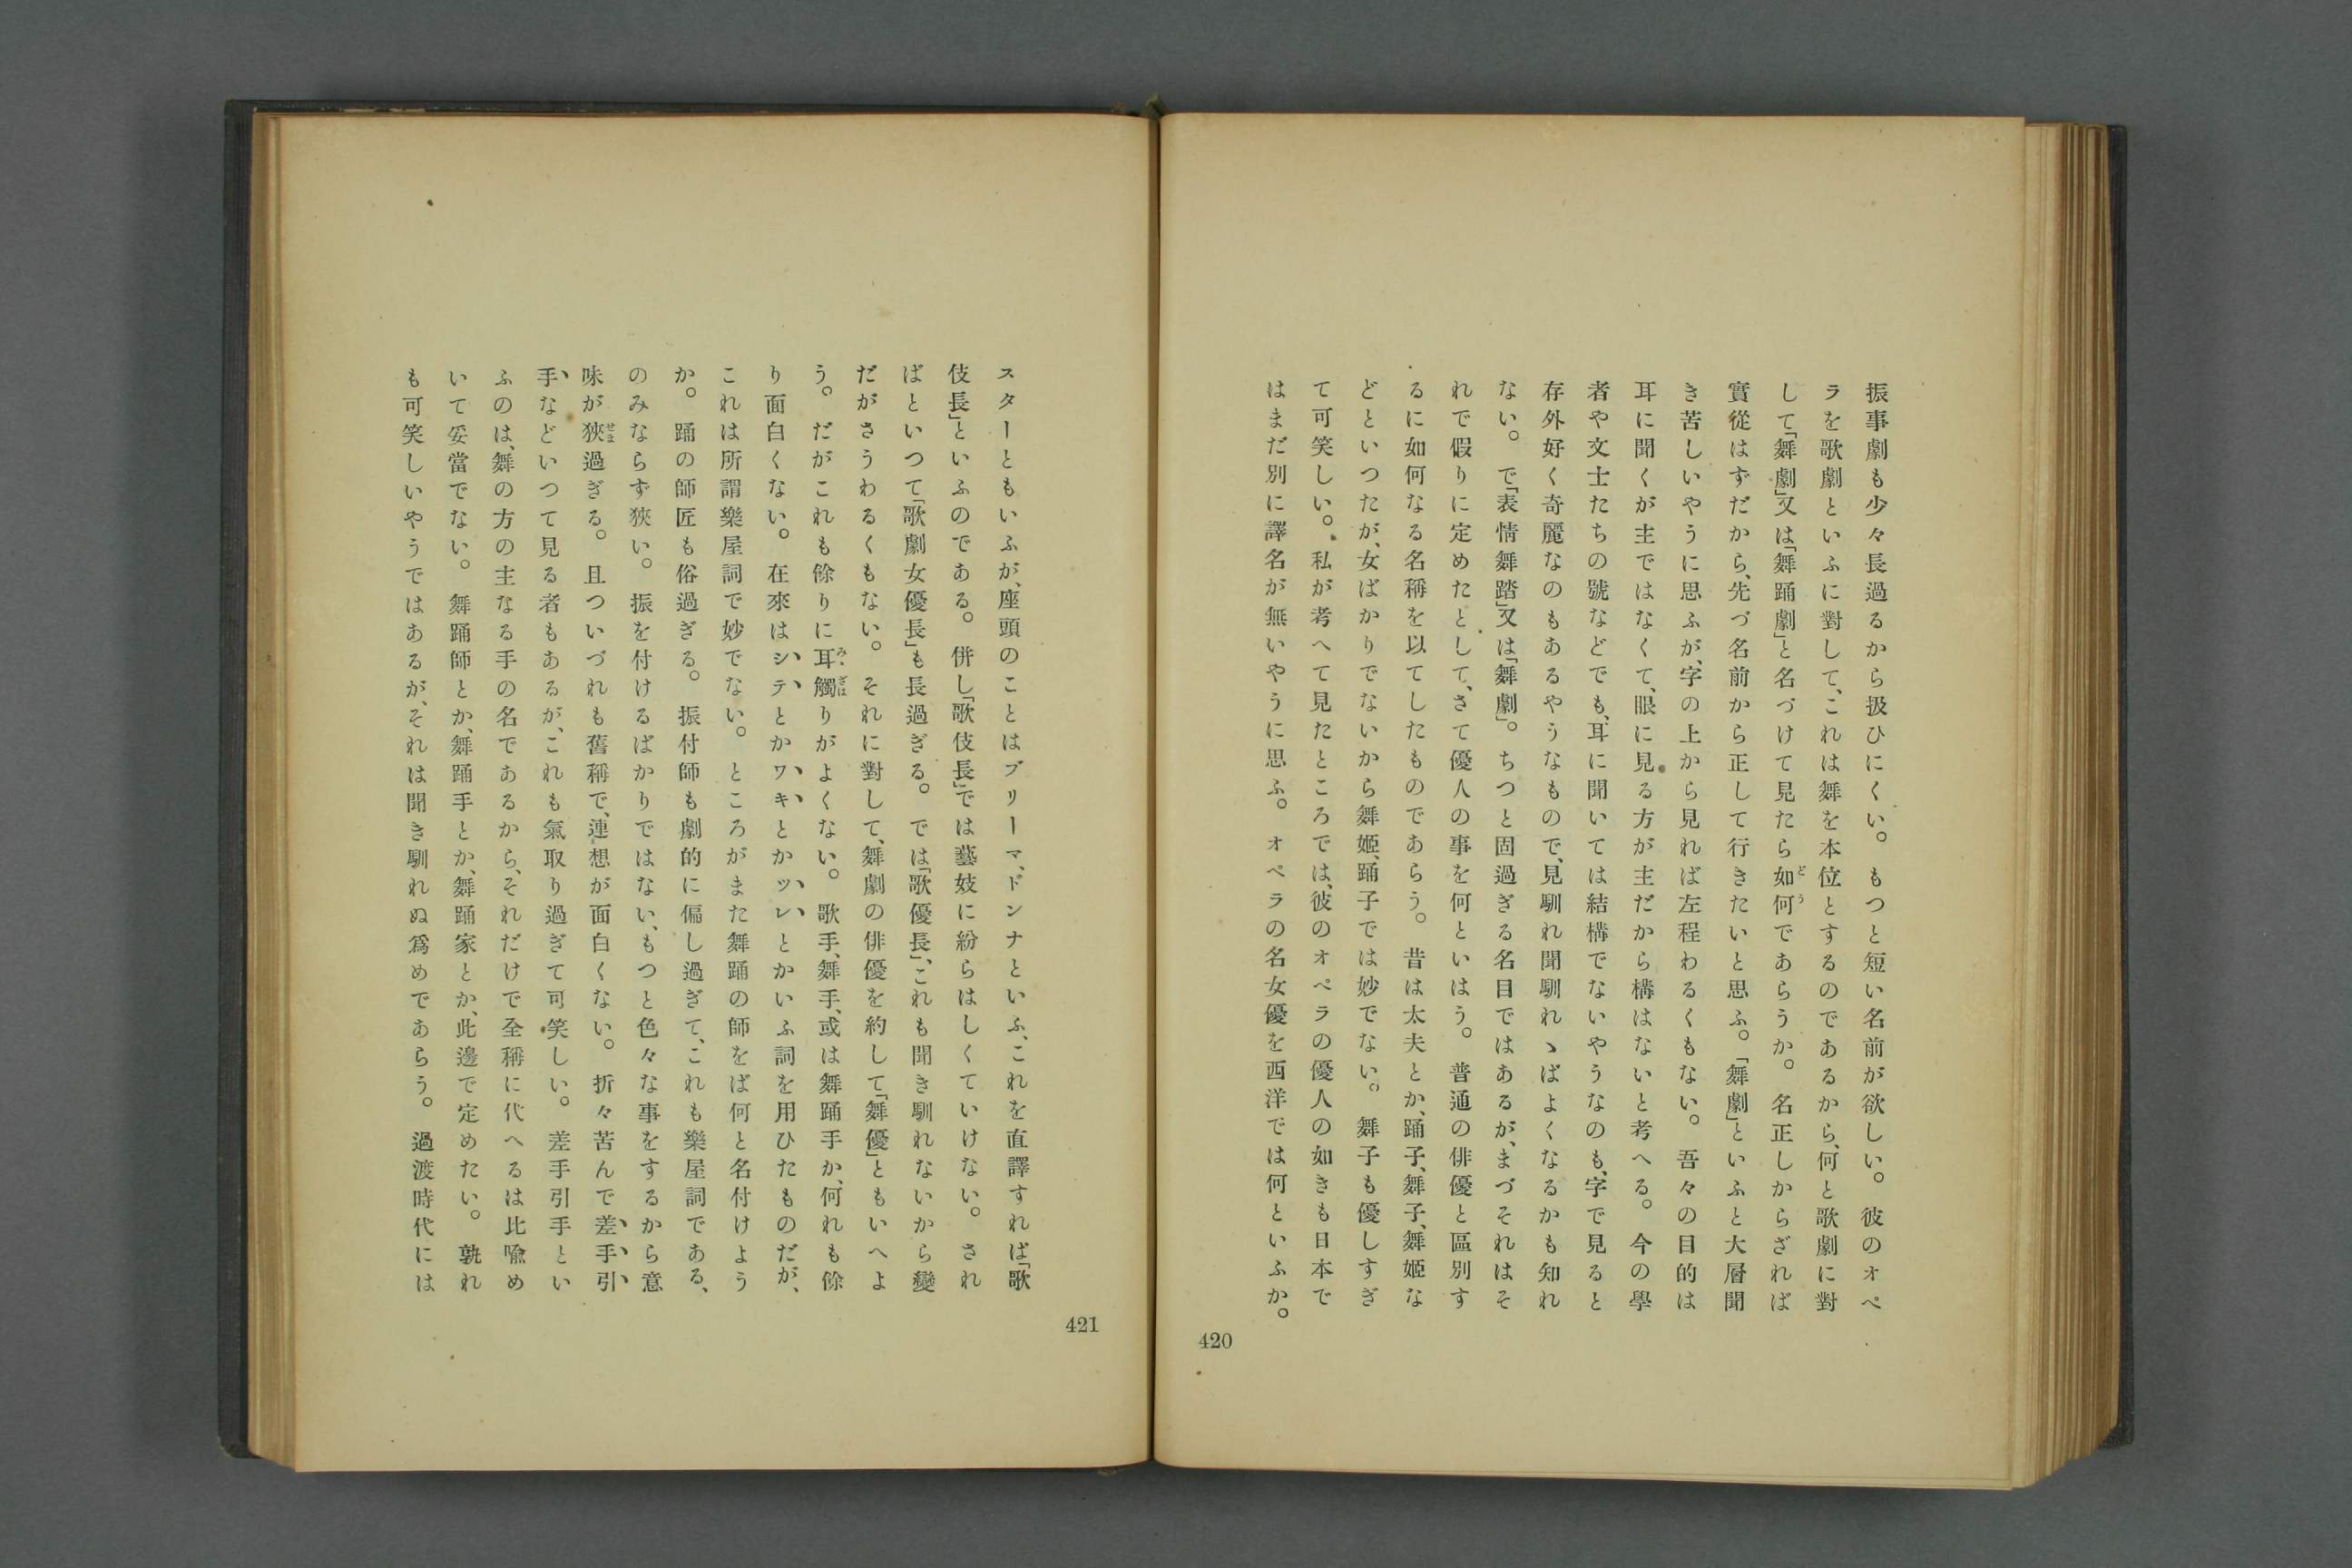 振事劇も少々長過るから扱ひにくい。もつと短い名前が欲しい。彼のオペ
ラを歌劇といふに對して、これは舞を本位とするのであるから、何と歌劇に對
して「舞劇」又は「舞踊劇」と名づけて見たら如何であらうか。名正しからざれば
實從はずだから、先づ名前から正して行きたいと思ふ。「舞劇」といふと大層聞
き苦しいやうに思ふが、字の上から見れば左程わるくもない。吾々の目的は
耳に聞くが主ではなくて、眼に見る方が主だから構はないと考へる。今の學
者や文士たちの號などでも、耳に聞いては結構でないやうなのも、字で見ると
存外好く奇麗なのもあるやうなもので、見馴れ聞馴れゝばよくなるかも知れ
ない。で「表情舞踏」又は「舞劇」。ちつと固過ぎる名目ではあるが、まづそれはそ
れで假りに定めたとして、さて優人の事を何といはう。普通の俳優と區別す
るに如何なる名稱を以てしたものであらう。昔は太夫とか、踊子、舞子、舞姬な
どといつたが、女ばかりでないから舞姬、踊子では妙でない。舞子も優しすぎ
て可笑しい。私が考へて見たところでは、彼のオペラの優人の如きも日本で
はまだ別に譯名が無いやうに思ふ。オペラの名女優を西洋では何といふか。
420
スターともいふが、座頭のことはプリーマ、ドンナといふ、これを直譯すれば「歌
伎長」といふのである。併し「歌伎長」では藝妓に紛らはしくていけない。され
ばといつて「歌劇女優長」も長過ぎる。では「歌優長」、これも聞き馴れないから變
だがさうわるくもない。それに對して、舞劇の俳優を約して「舞優」ともいへよ
う。だがこれも餘りに耳觸りがよくない。歌手、舞手、或は舞踊手か、何れも餘
り面白くない。在來はシテとかワキとかツレとかいふ詞を用ひたものだが、
これは所謂樂屋詞で妙でない。ところがまた舞踊の師をば何と名付けよう
か。踊の師匠も俗過ぎる。振付師も劇的に偏し過ぎて、これも樂屋詞である、
のみならず狹い。振を付けるばかりではない、もつと色々な事をするから意
味が狹過ぎる。且ついづれも舊稱で、連想が面白くない。折々苦んで差手引
手などいつて見る者もあるが、これも氣取り過ぎて可笑しい。差手引手とい
ふのは、舞の方の主なる手の名であるから、それだけで全稱に代へるは比喩め
いて妥當でない。舞踊師とか、舞踊手とか、舞踊家とか、此邊で定めたい。孰れ
も可笑しいやうではあるが、それは聞き馴れぬ爲めであらう。過渡時代には
421